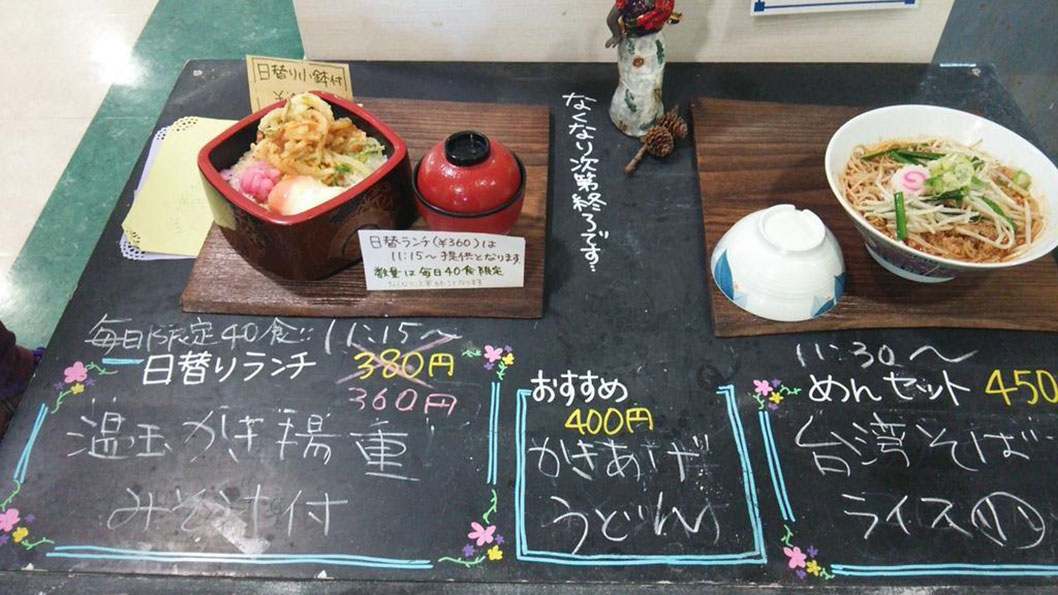 日替り小鉢付
なくなり次第終了です…
日替ランチ(¥360)は
11:15〜提供となります
数量は毎日40食限定
なくなり次第終了となります
毎日限定40食!! 11:15〜
日替りランチ 380円
360円
温玉かき揚重
みそ汁付
おすすめ
400円
かきあげ
うどん
11:30〜
めんセット 450
台湾そば
ライス(小)